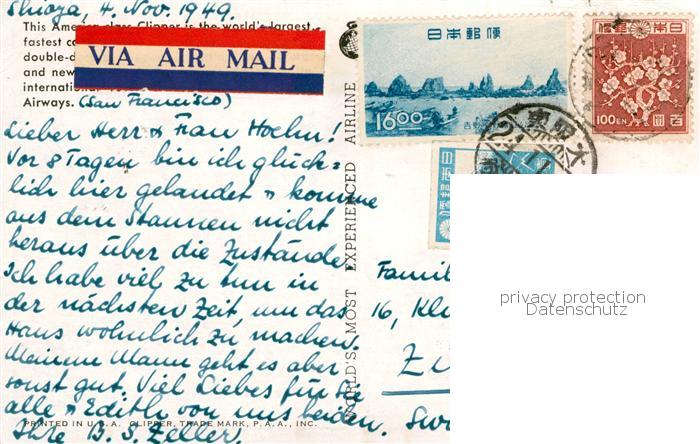 Shioya, 4. Nov. 1949.
This Ame class Clipper is the world's largest,
fastest
double-d
and new
internatio
Airways. (San Francisco)
VIA AIR MAIL
Lieber Herr & Frau Hoehn!
Vor 8 Tagen bin ich glück=
lich hier gelandet & komme
aus dem Staunen nicht
heraus über die Zustände.
Ich habe viel zu tun in
der nächsten Zeit, um das
Haus wohnlich zu machen.
Meinem Mann geht es aber
sonst gut. Viel Liebes für Sie
alle & Edith von uns beiden.
PRINTED IN U. S. A. CLIPPER, TRADE MARK, P. A. A., INC.
Ihre B. S. Zeller.
WORLD'S MOST EXPERIENCED AIRLINE
日本郵便
16.00
便郵本日
100EN
圓百
Famil
16, Kl
Zü
Sw
privacy protection
Datenschutz